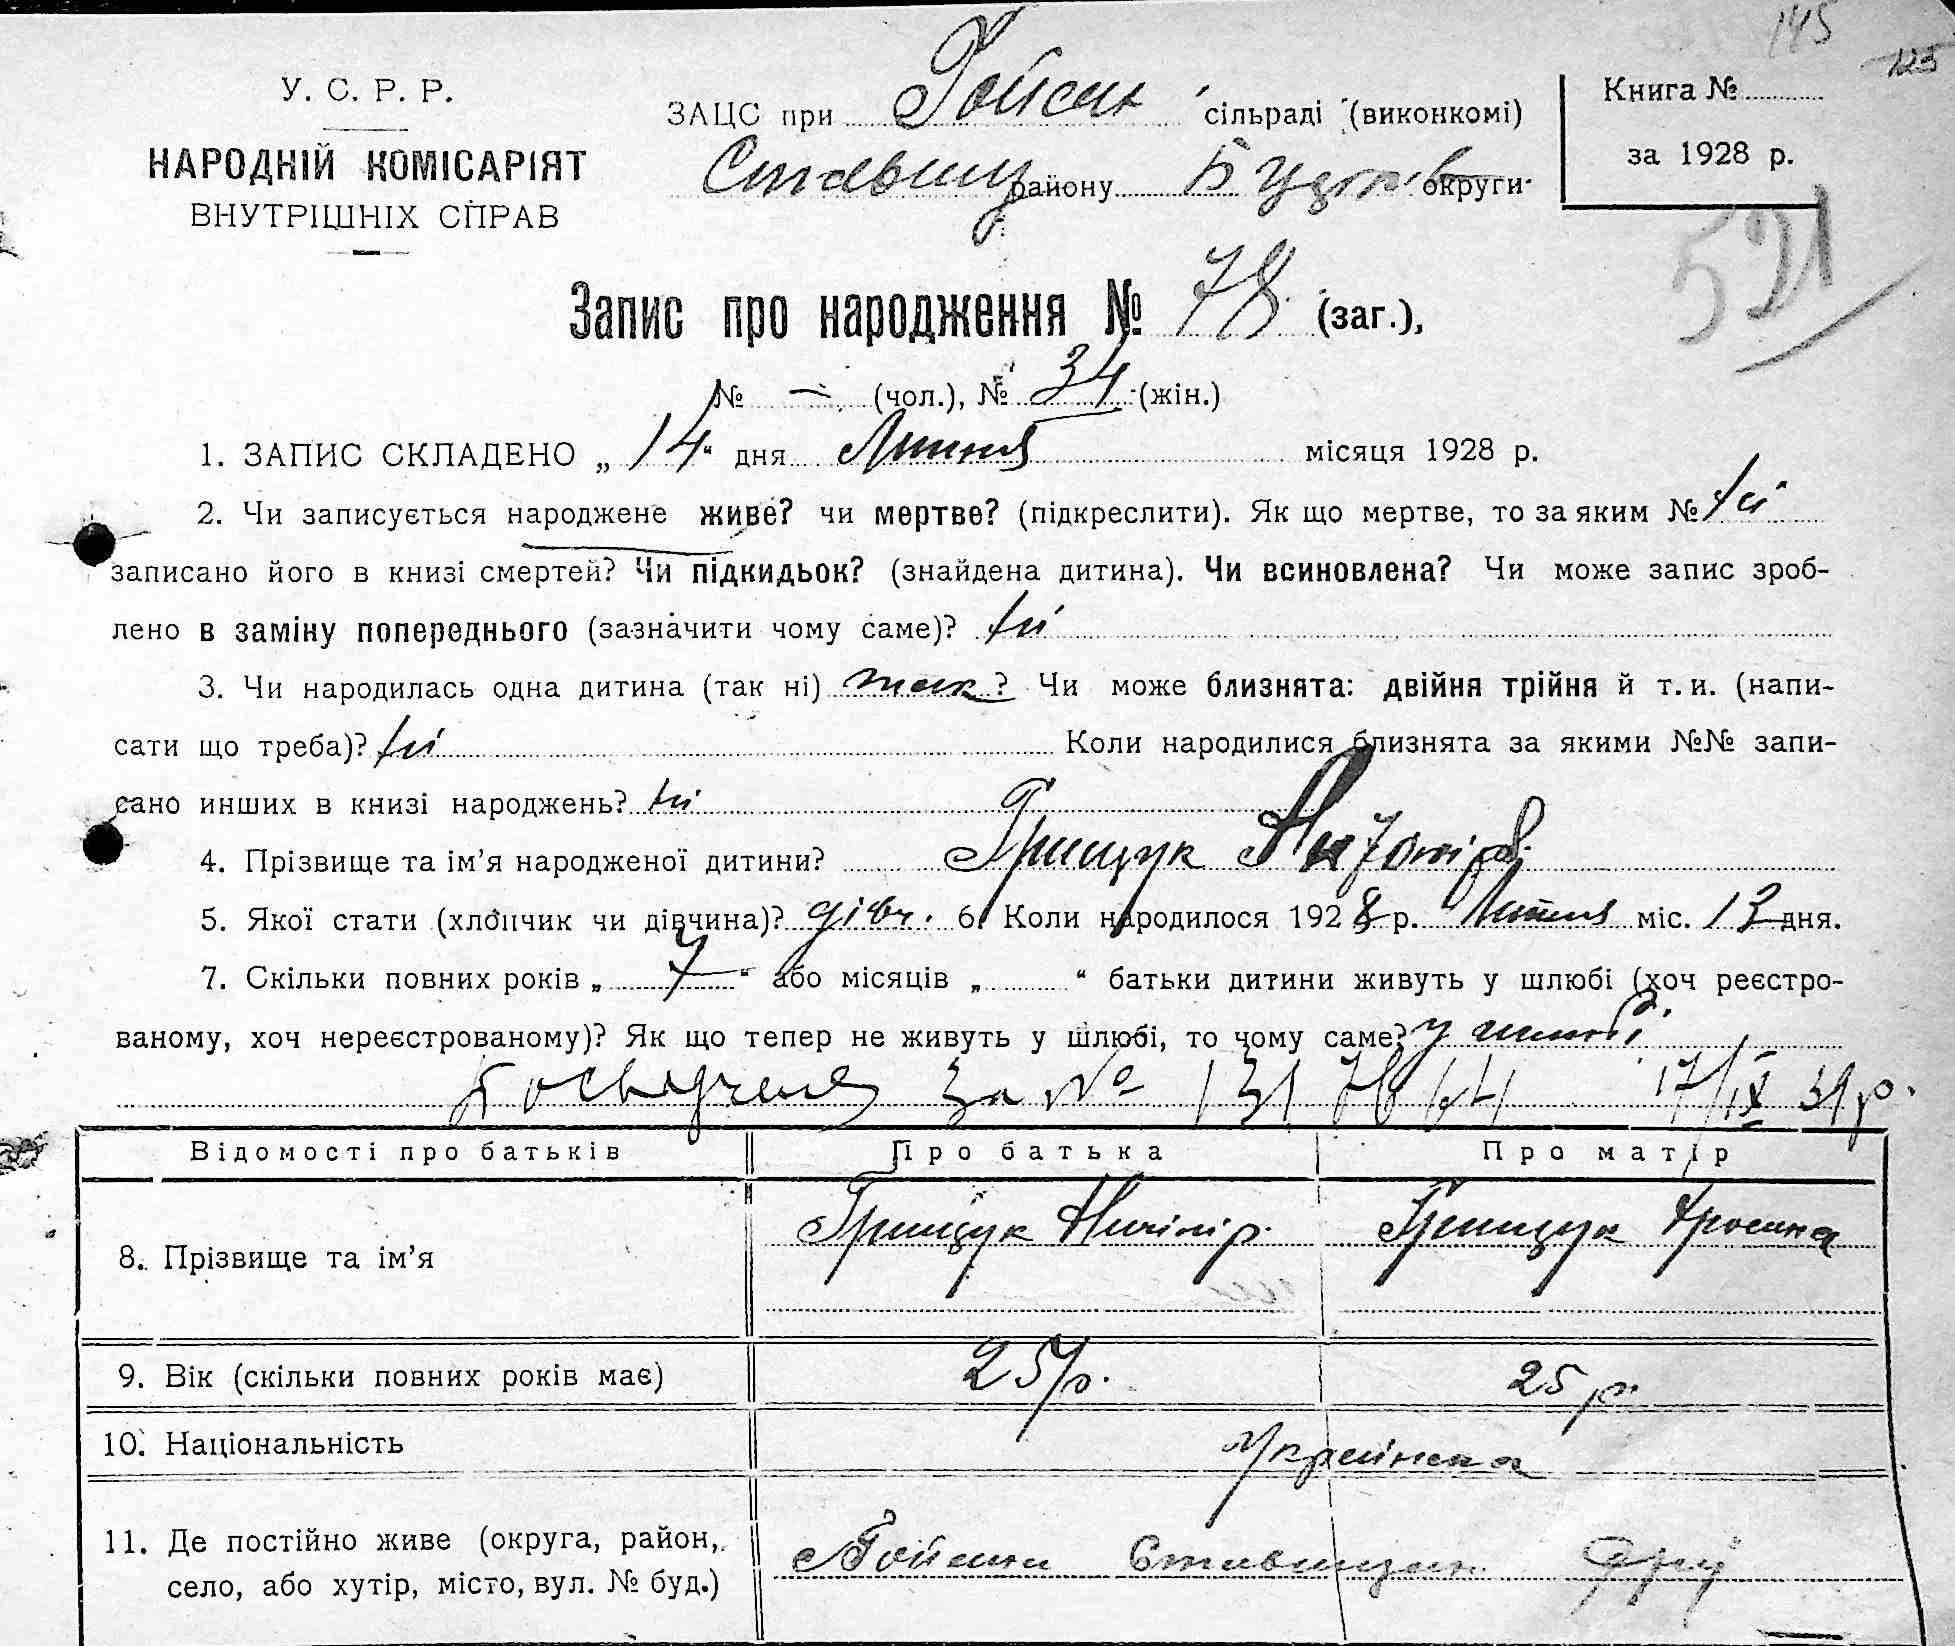 145
123
У. С. Р. Р.
НАРОДНІЙ КОМІСАРІЯТ
ВНУТРІШНІХ СПРАВ
ЗАЦС при Йойсан сільраді (виконкомі)
Ставищ району округи
Книга №
за 1928 р.
521
Запис про народження № 78 (заг.),
№ — (чол.), № 34 (жін.)
1. ЗАПИС СКЛАДЕНО „ 14 “ дня Липня місяця 1928 р.
2. Чи записується народжене живе? чи мертве? (підкреслити). Як що мертве, то за яким № ні
записано його в книзі смертей? Чи підкидьок? (знайдена дитина). Чи всиновлена? Чи може запис зроб-
лено в заміну попереднього (зазначити чому саме)? ні
3. Чи народилась одна дитина (так ні) так ? Чи може близнята: двійня трійня й т. и. (напи-
сати що треба)? ні Коли народилися близнята за якими №№ запи-
сано инших в книзі народжень? ні
4. Прізвище та ім’я народженої дитини? Грищук
5. Якої стати (хлопчик чи дівчина)? дівч. 6. Коли народилося 1928 р. Липня міс. 13 дня.
7. Скільки повних років „ 7 “ або місяців „ “ батьки дитини живуть у шлюбі (хоч реєстро-
ваному, хоч нереєстрованому)? Як що тепер не живуть у шлюбі, то чому саме? у шлюбі
за № 17/IX 39 р.
Відомості про батьків Про батька Про матір
8. Прізвище та ім’я Грищук Ничіпір Грищук
9. Вік (скільки повних років має) 25 р. 25 р.
10. Національність Украйнска
11. Де постійно живе (округа, район,
село, або хутір, місто, вул. № буд.)